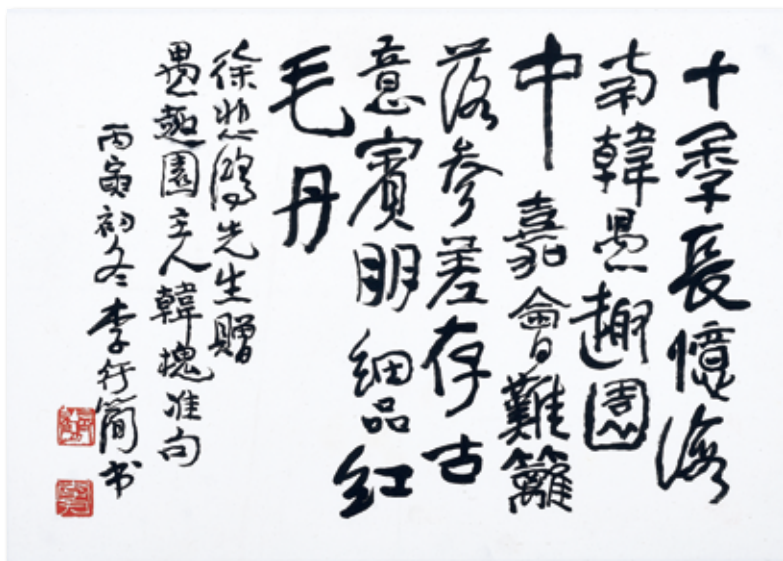 十季長憶海
南韓愚趣園
中嘉會難籬
落參差存古
意賓朋細品紅
毛丹
徐悲鴻先生贈
愚趣園主人韓槐准句
丙寅初冬李行簡书